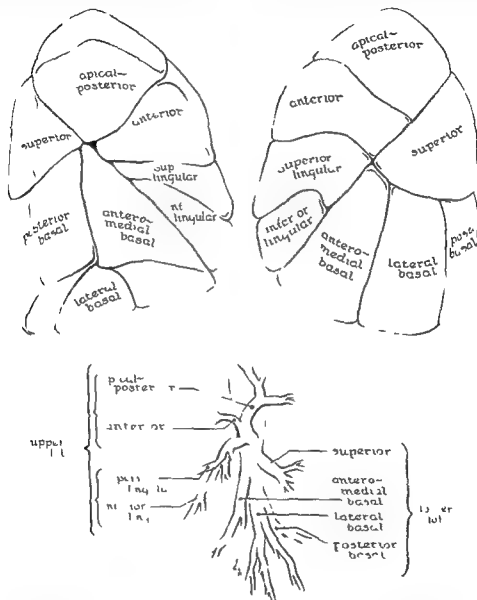 apical-
posterior
anterior
superior
sup
lingular
lingular
posterior
basal
antero-
medial
basal
lateral
basal
apical-
posterior
anterior
superior
superior
lingular
lingular
antero-
medial
basal
lateral
basal
basal
superior
antero-
medial
basal
lateral
basal
posterior
basal